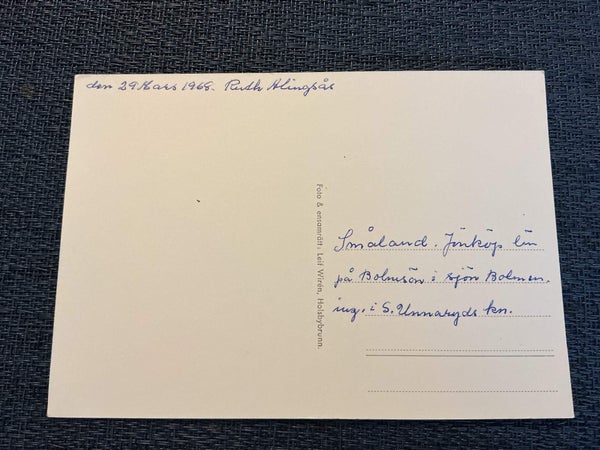 den 29 Mars 1968. Ruth Alingsås
Foto & ensamrätt: Leif Wirén, Holsbybrunn.
Småland. Jönköp. län
på Bolmsön i sjön Bolmen.
ing. i S. Unnaryds kn.